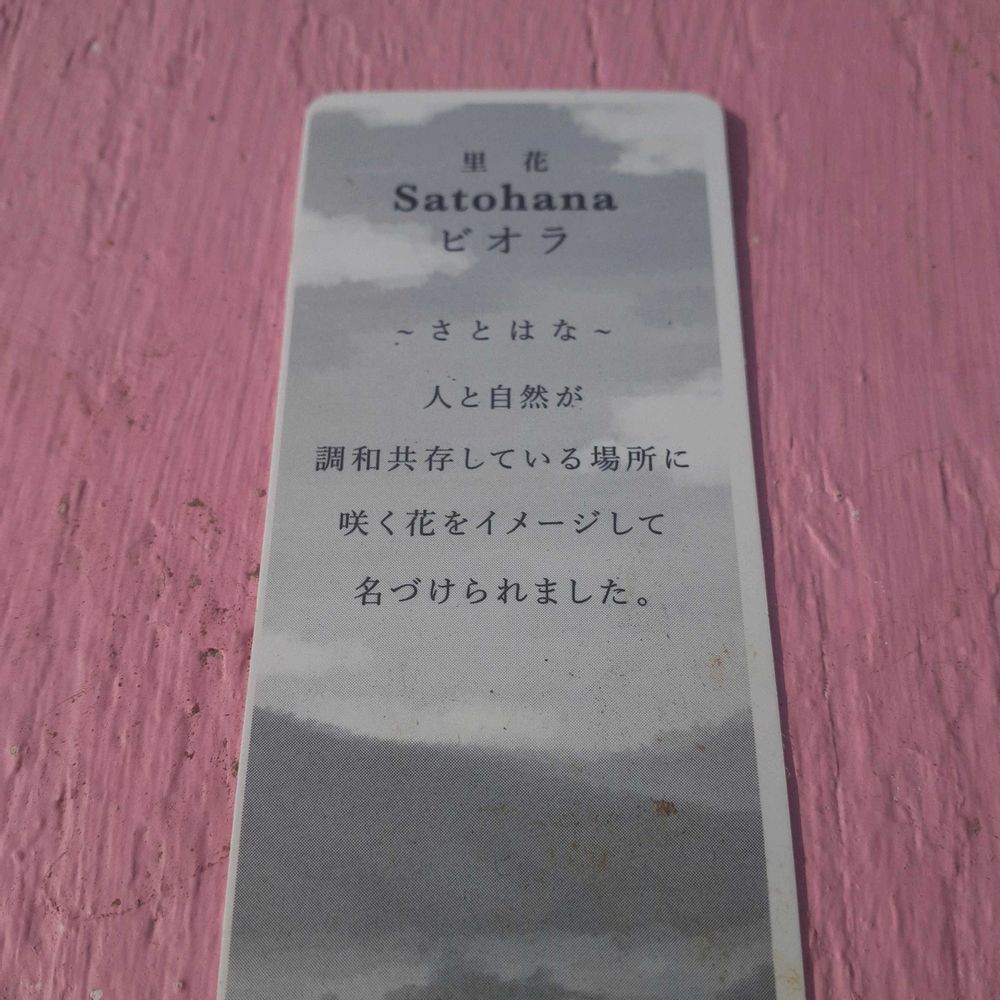 里 花
Satohana
ビオラ
~さとはな~
人と自然が
調和共存している場所に
咲く花をイメージして
名づけられました。